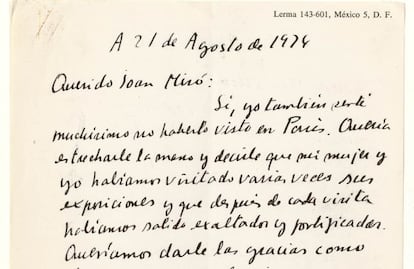 Lerma 143-601, México 5, D. F.
A 21 de Agosto de 1974
Querido Joan Miró:
Sí, yo también sentí
muchísimo no haberlo visto en París. Quería
estrecharle la mano y decirle que mi mujer y
yo habíamos visitado varias veces sus
exposiciones y que después de cada visita
habíamos salido exaltados y fortificados.
Queríamos darle las gracias como